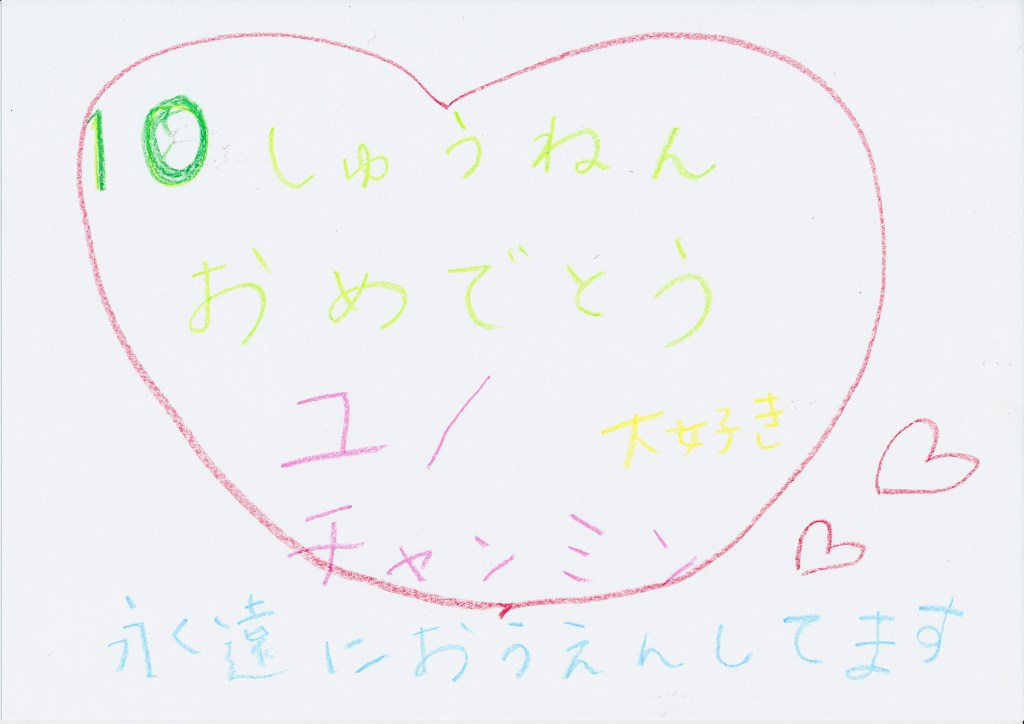 10しゅうねん
おめでとう
ユノ 大好き
チャンミン
永く遠におうえんしてます